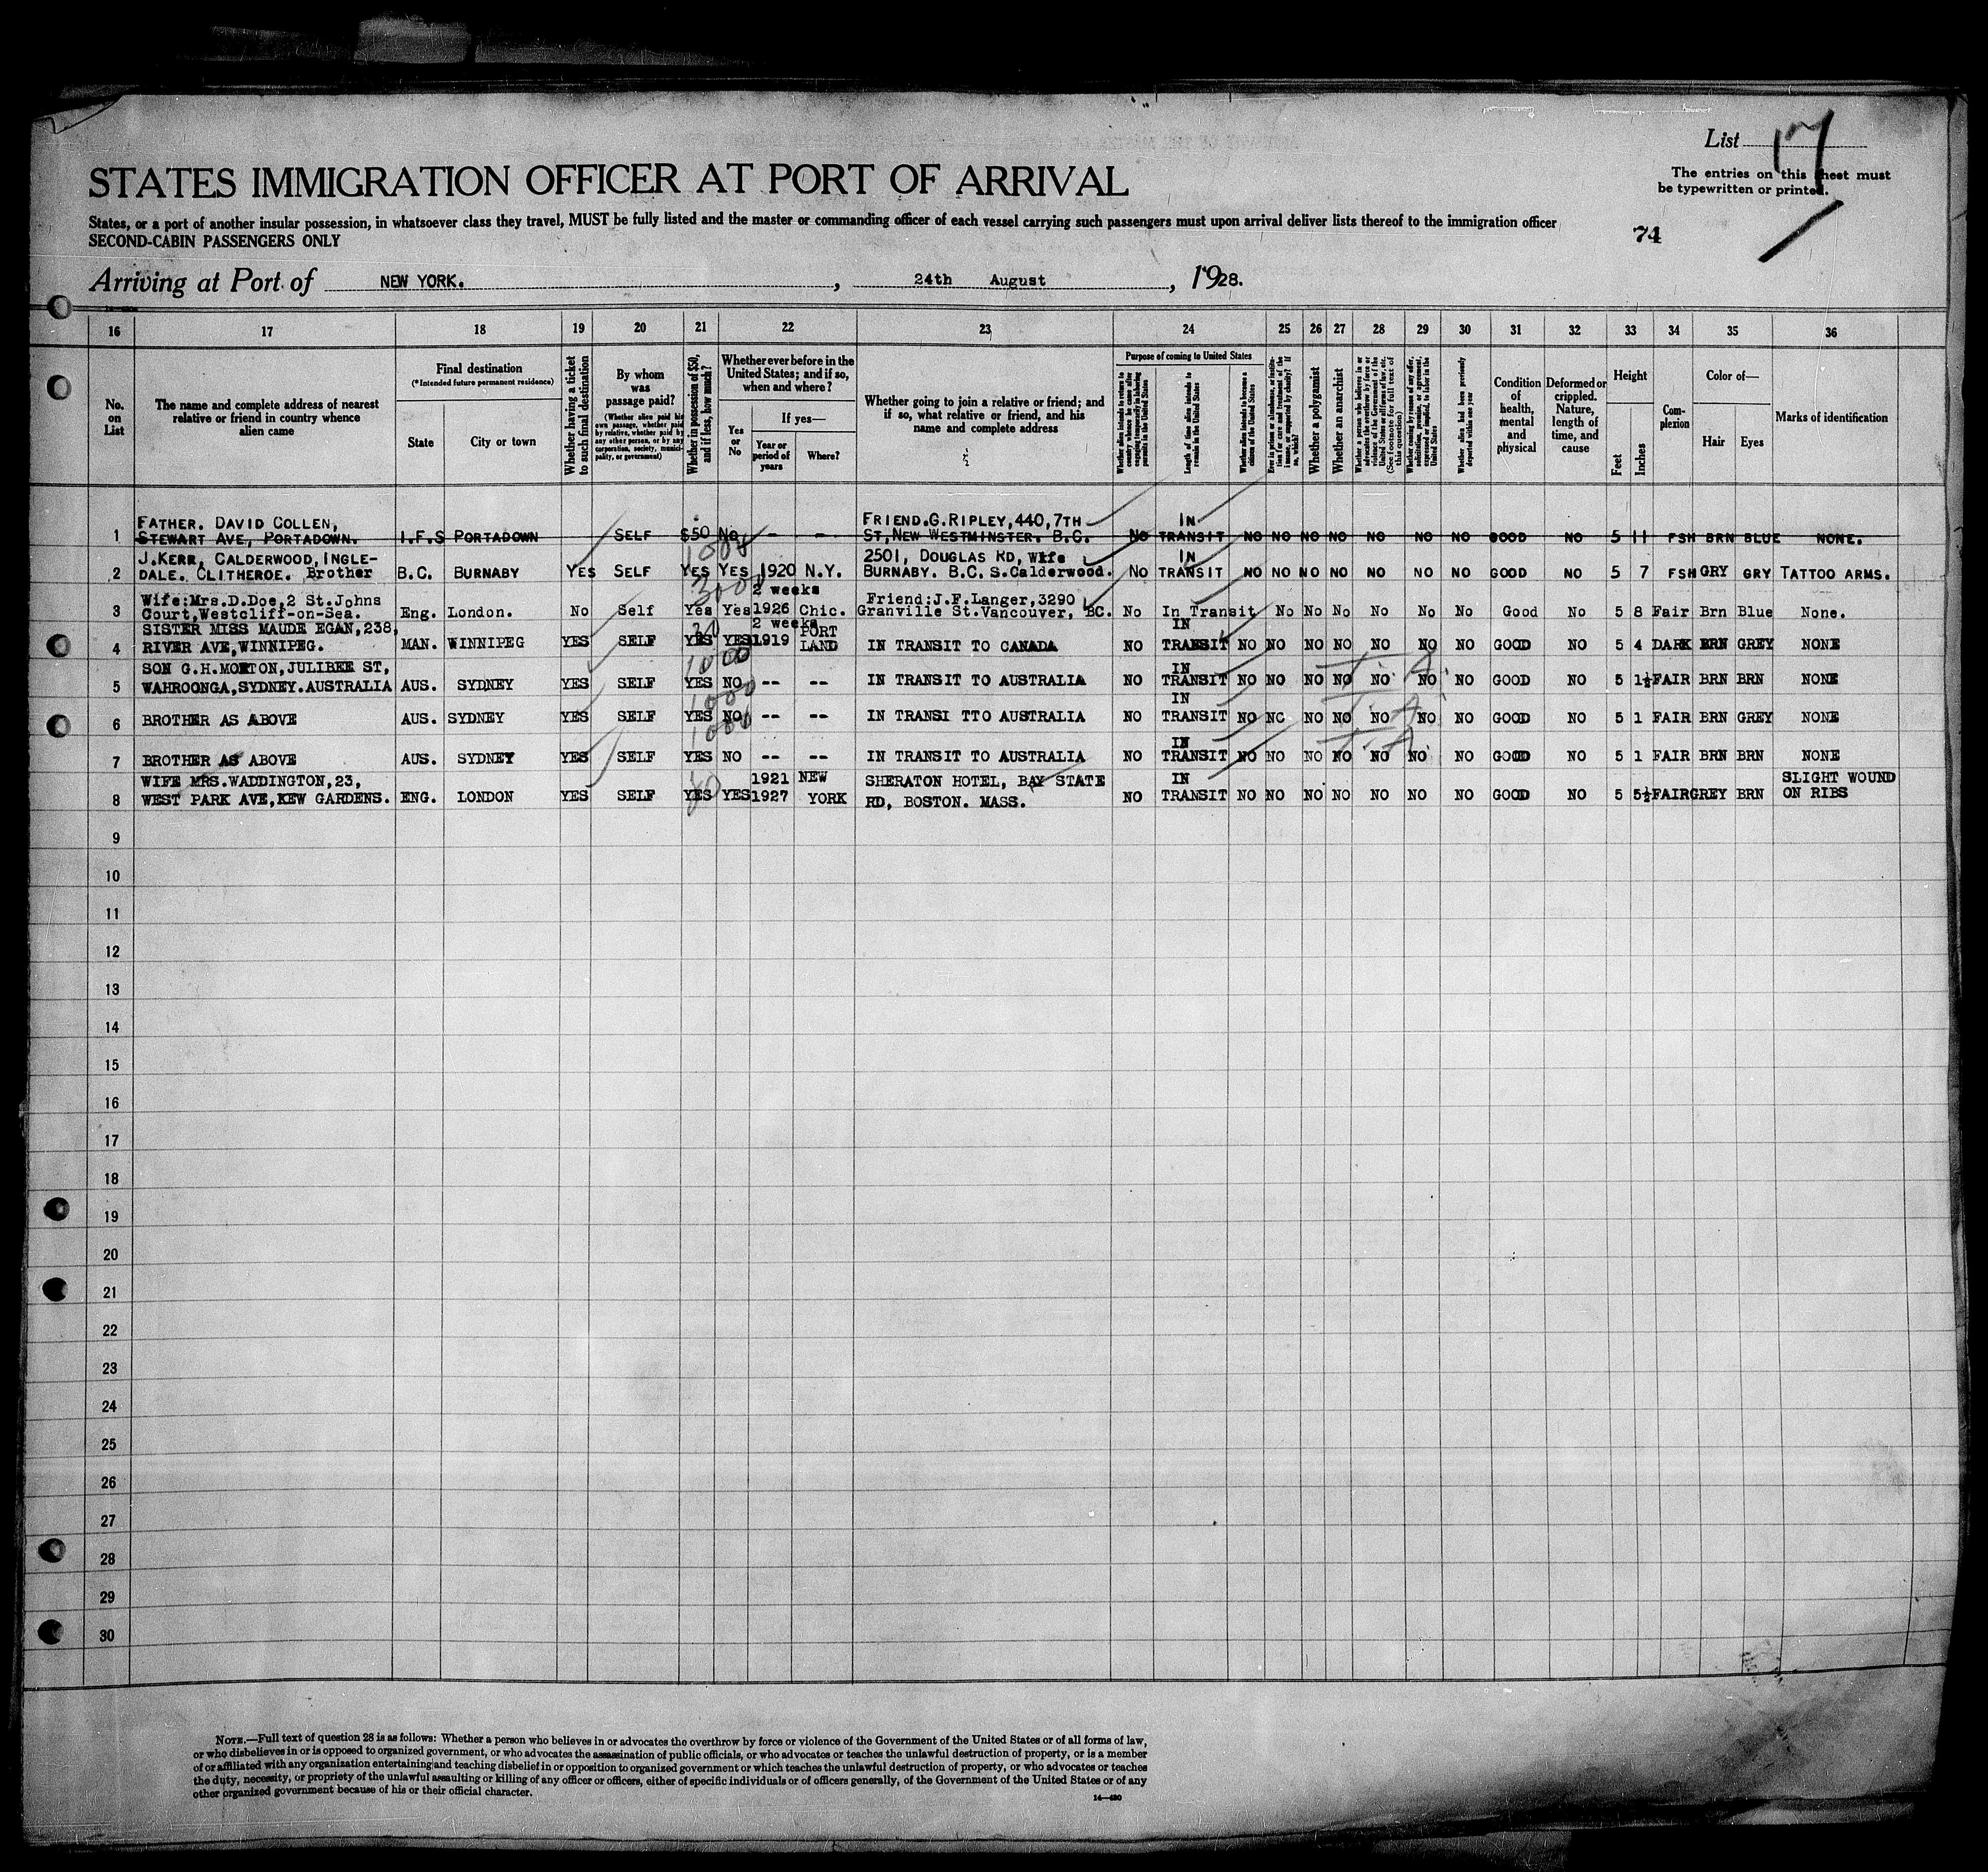 List 17
The entries on this sheet must
be typewritten or printed.
STATES IMMIGRATION OFFICER AT PORT OF ARRIVAL
States, or a port of another insular possession, in whatsoever class they travel, MUST be fully listed and the master or commanding officer of each vessel carrying such passengers must upon arrival deliver lists thereof to the immigration officer
SECOND-CABIN PASSENGERS ONLY
74
Arriving at Port of NEW YORK. , 24th August , 1928.
16 17 18 19 20 21 22 23 24 25 26 27 28 29 30 31 32 33 34 35 36
No. on List
The name and complete address of nearest relative or friend in country whence alien came
Final destination
(*Intended future permanent residence)
State
City or town
Whether having a ticket to such final destination
By whom was passage paid?
(Whether alien paid his own passage, whether paid by relative, whether paid by any other person, or by any corporation, society, municipality, or government)
Whether in possession of $50, and if less, how much?
Whether ever before in the United States; and if so, when and where?
Yes or No
If yes—
Year or period of years
Where?
Whether going to join a relative or friend; and if so, what relative or friend, and his name and complete address
Purpose of coming to United States
Length of time alien intends to remain in the United States
Whether alien intends to become a citizen of the United States
Whether a polygamist
Whether an anarchist
Whether alien had been previously deported within one year
Condition of health, mental and physical
Deformed or crippled. Nature, length of time, and cause
Height
Feet
Inches
Complexion
Color of—
Hair
Eyes
Marks of identification
FATHER. DAVID COLLEN, FRIEND.G.RIPLEY,440,7TH IN
1 STEWART AVE, PORTADOWN. I.F.S PORTADOWN SELF $50 No - - ST,NEW WESTMINSTER. B.C. NO TRANSIT NO NO NO NO NO NO NO GOOD NO 5 11 FSH BRN BLUE NONE.
J.KERR, CALDERWOOD, INGLE- 1000 2501, DOUGLAS RD, Wife IN
2 DALE. CLITHEROE. Brother B.C. BURNABY YES SELF YES YES 1920 N.Y. BURNABY. B.C. S.Calderwood. NO TRANSIT NO NO NO NO NO NO NO GOOD NO 5 7 FSH GRY GRY TATTOO ARMS.
Wife:Mrs.D.Doe,2 St.Johns 300 2 weeks Friend:J.F.Langer,3290
3 Court,Westcliff-on-Sea. Eng. London. No Self Yes Yes 1926 Chic. Granville St.Vancouver, BC. No In Transit No No No No No No Good No 5 8 Fair Brn Blue None.
SISTER MISS MAUDE EGAN,238, 2 weeks PORT IN
4 RIVER AVE,WINNIPEG. MAN. WINNIPEG YES SELF YES YES 1919 LAND IN TRANSIT TO CANADA NO TRANSIT NO NO NO NO NO NO NO GOOD NO 5 4 DARK BRN GREY NONE
SON G.H.MORTON,JULIBEE ST, 1000 IN
5 WAHROONGA,SYDNEY.AUSTRALIA AUS. SYDNEY YES SELF YES NO -- -- IN TRANSIT TO AUSTRALIA NO TRANSIT NO NO NO NO NO NO NO GOOD NO 5 1½ FAIR BRN BRN NONE
T. A.
1000 IN
6 BROTHER AS ABOVE AUS. SYDNEY YES SELF YES NO -- -- IN TRANSI TTO AUSTRALIA NO TRANSIT NO NO NO NO NO NO NO GOOD NO 5 1 FAIR BRN GREY NONE
T. A.
1000 IN
7 BROTHER AS ABOVE AUS. SYDNEY YES SELF YES NO -- -- IN TRANSIT TO AUSTRALIA NO TRANSIT NO NO NO NO NO NO NO GOOD NO 5 1 FAIR BRN BRN NONE
T. A.
WIFE MRS.WADDINGTON,23, 1921 NEW SHERATON HOTEL, BAY STATE IN SLIGHT WOUND
8 WEST PARK AVE,KEW GARDENS. ENG. LONDON YES SELF YES YES 1927 YORK RD, BOSTON. MASS. NO TRANSIT NO NO NO NO NO NO NO GOOD NO 5 5½ FAIR GREY BRN ON RIBS
9
10
11
12
13
14
15
16
17
18
19
20
21
22
23
24
25
26
27
28
29
30
NOTE.—Full text of question 28 is as follows: Whether a person who believes in or advocates the overthrow by force or violence of the Government of the United States or of all forms of law,
or who disbelieves in or is opposed to organized government, or who advocates the assassination of public officials, or who advocates or teaches the unlawful destruction of property, or is a member
of or affiliated with any organization entertaining and teaching disbelief in or opposition to organized government or which teaches the unlawful destruction of property, or who advocates or teaches
the duty, necessity, or propriety of the unlawful assaulting or killing of any officer or officers, either of specific individuals or of officers generally, of the Government of the United States or of any
other organized government because of his or their official character.
14—480